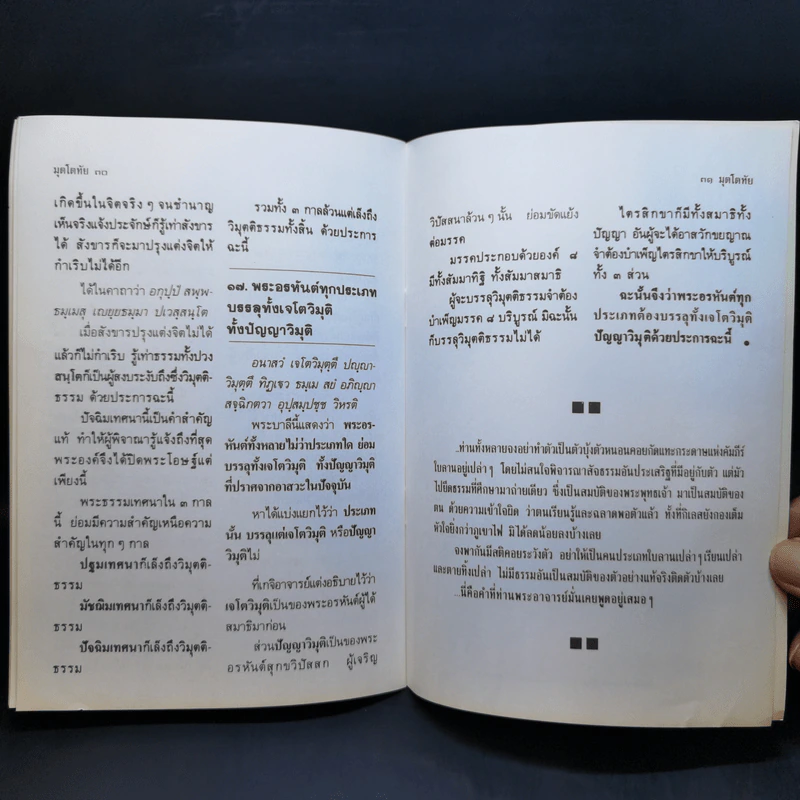 มุตโตทัย ๓๐
เกิดขึ้นในจิตจริง ๆ จนชำนาญ
เห็นจริงแจ้งประจักษ์ก็รู้เท่าสังขาร
ได้ สังขารก็จะมาปรุงแต่งจิตให้
กำเริบไม่ได้อีก
ได้ในคาถาว่า อกุปฺปํ สพฺพ-
ธมฺเมสุ เญยฺยธมฺมา ปเวสฺสนฺโต
เมื่อสังขารปรุงแต่งจิตไม่ได้
แล้วก็ไม่กำเริบ รู้เท่าธรรมทั้งปวง
สนฺโตก็เป็นผู้สงบระงับถึงซึ่งวิมุตติ-
ธรรม ด้วยประการฉะนี้
ปัจฉิมเทศนานี้เป็นคำสำคัญ
แท้ ทำให้ผู้พิจาณารู้แจ้งถึงที่สุด
พระองค์จึงได้ปิดพระโอษฐ์แต่
เพียงนี้
พระธรรมเทศนาใน ๓ กาล
นี้ ย่อมมีความสำคัญเหนือความ
สำคัญในทุก ๆ กาล
ปฐมเทศนาก็เล็งถึงวิมุตติ-
ธรรม
มัชฌิมเทศนาก็เล็งถึงวิมุตติ-
ธรรม
ปัจฉิมเทศนาก็เล็งถึงวิมุตติ-
ธรรม
รวมทั้ง ๓ กาลล้วนแต่เล็งถึง
วิมุตติธรรมทั้งสิ้น ด้วยประการ
ฉะนี้
๑๗. พระอรหันต์ทุกประเภท
บรรลุทั้งเจโตวิมุติ
ทั้งปัญญาวิมุติ
อนาสวํ เจโตวิมุตฺตึ ปญฺญา-
วิมุตฺตึ ทิฏฺเฐว ธมฺเม สยํ อภิญฺญา
สจฺฉิกตวา อุปสมฺปชฺช วิหรติ
พระบาลีนี้แสดงว่า พระอร-
หันต์ทั้งหลายไม่ว่าประเภทใด ย่อม
บรรลุทั้งเจโตวิมุติ ทั้งปัญญาวิมุติ
ที่ปราศจากอาสวะในปัจจุบัน
หาได้แบ่งแยกไว้ว่า ประเภท
นั้น บรรลุแต่เจโตวิมุติ หรือปัญญา
วิมุติไม่
ที่เกจิอาจารย์แต่งอธิบายไว้ว่า
เจโตวิมุติเป็นของพระอรหันต์ผู้ได้
สมาธิมาก่อน
ส่วนปัญญาวิมุติเป็นของพระ
อรหันต์สุกขวิปัสสก ผู้เจริญ
๓๑ มุตโตทัย
วิปัสสนาล้วน ๆ นั้น ย่อมขัดแย้ง
ต่อมรรค
มรรคประกอบด้วยองค์ ๘
มีทั้งสัมมาทิฐิ ทั้งสัมมาสมาธิ
ผู้จะบรรลุวิมุตติธรรมจำต้อง
บำเพ็ญมรรค ๘ บริบูรณ์ มิฉะนั้น
ก็บรรลุวิมุตติธรรมไม่ได้
ไตรสิกขาก็มีทั้งสมาธิทั้ง
ปัญญา อันผู้จะได้อาสวักขยญาณ
จำต้องบำเพ็ญไตรสิกขาให้บริบูรณ์
ทั้ง ๓ ส่วน
ฉะนั้นจึงว่าพระอรหันต์ทุก
ประเภทต้องบรรลุทั้งเจโตวิมุติ
ปัญญาวิมุติด้วยประการฉะนี้ ๑
...ท่านทั้งหลายจงอย่าทำตัวเป็นตัวบุ้งตัวหนอนคอยกัดแทะกระดาษแห่งคัมภีร์
ใบลานอยู่เปล่าๆ โดยไม่สนใจพิจารณาสัจธรรมอันประเสริฐที่มีอยู่กับตัว แต่มัว
ไปยึดธรรมที่ศึกษามาถ่ายเดียว ซึ่งเป็นสมบัติของพระพุทธเจ้า มาเป็นสมบัติของ
ตน ด้วยความเข้าใจผิด ว่าตนเรียนรู้และฉลาดพอตัวแล้ว ทั้งที่กิเลสยังกองเต็ม
หัวใจยิ่งกว่าภูเขาไฟ มิได้ลดน้อยลงบ้างเลย
จงพากันมีสติคอยระวังตัว อย่าให้เป็นคนประเภทใบลานเปล่าๆ เรียนเปล่า
และตายทิ้งเปล่า ไม่มีธรรมอันเป็นสมบัติของตัวอย่างแท้จริงติดตัวบ้างเลย
...นี่คือคำที่ท่านพระอาจารย์มั่นเคยพูดอยู่เสมอๆ